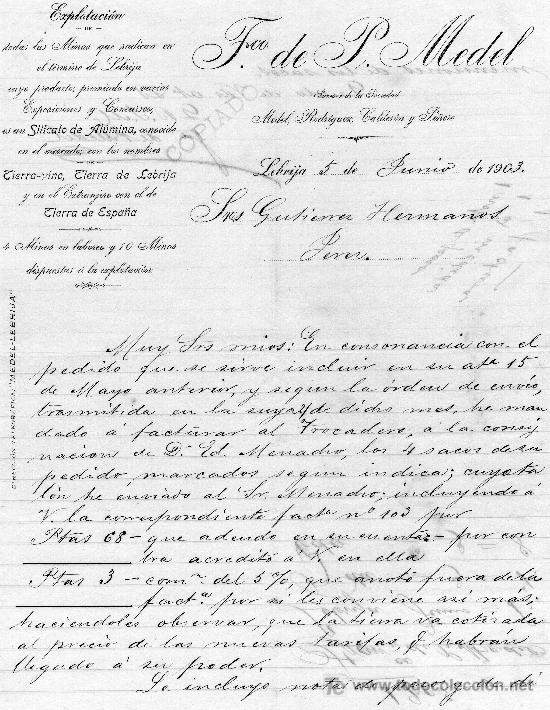 Explotación
DE
todas las Minas que radican en
el término de Lebrija
cuyo producto, premiado en varias
Exposiciones y Concursos,
es un Silicato de Alúmina, conocido
en el mercado con los nombres
Tierra-vino, Tierra de Lebrija
y en el Extranjero con el de
Tierra de España
4 Minas en laboreo y 10 Minas
dispuestas á la explotación
"MEDEL-LEBRIJA"
F.co de P. Medel
Sucesor de la Sociedad
Medel, Rodríguez, Calderón y
COPIADO
Lebrija 5 de Junio de 1903.
Sres Gutierrez Hermanos
Jerez.
Muy Srs mios: En consonancia con el
pedido que se sirve incluir en su atª 15
de Mayo anterior, y segun la órden de envio,
trasmitida en la suya de dicho mes, he man
dado á facturar al Trocadero, á la consig
nacion de D. Ed. Menadro, los 4 sacos de su
pedido marcados segun indica; cuyo ta
lon he enviado al Sr. Menadro; incluyendo á
V. la correspondiente factª nº 103 por
Ptas 68 - que adeudo en su cuenta - por con
tra acreditó á V. en ella
Ptas 3 - comn. del 5%, que anotó fuera de la
factª por si les conviene así mas;
haciendoles observar, que la tierra va cotizada
al precio de las nuevas tarifas, q. habrán
llegado á su poder.
Le incluyo nota de peso y de di
www.todocoleccion.net